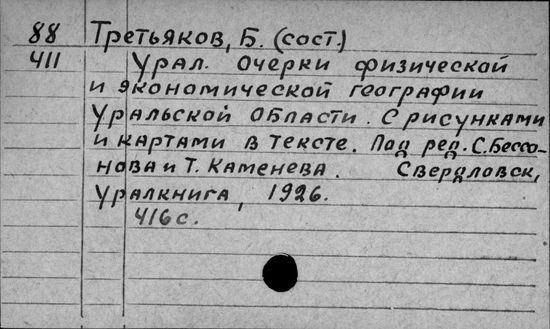 88 Третьяков, Б. (сост.)
411 Урал. Очерки физической
и экономической географии
Уральской области. С рисунками
и картами в тексте. Под ред. С. Бессо-
нова и Т. Каменева. Свердловск,
Уралкнига, 1926.
416 с.